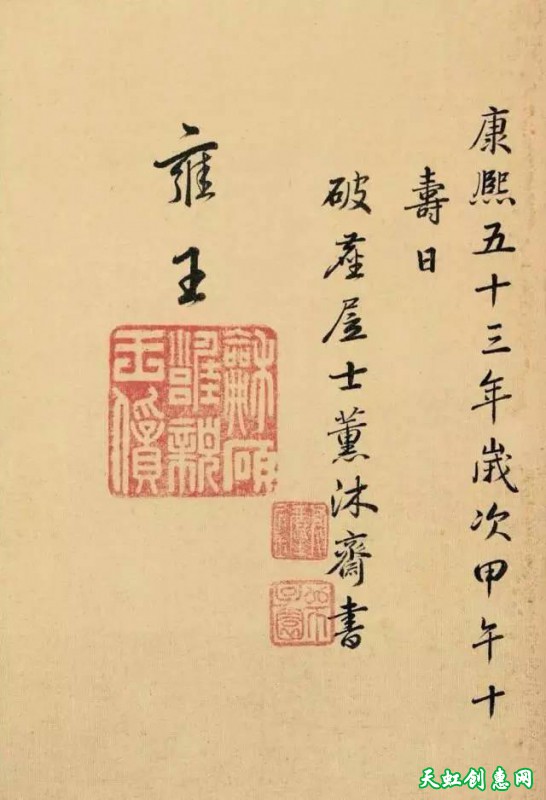 康熙五十三年歲次甲午十
壽日
破塵居士薰沐齋書
雍王
天虹创惠网